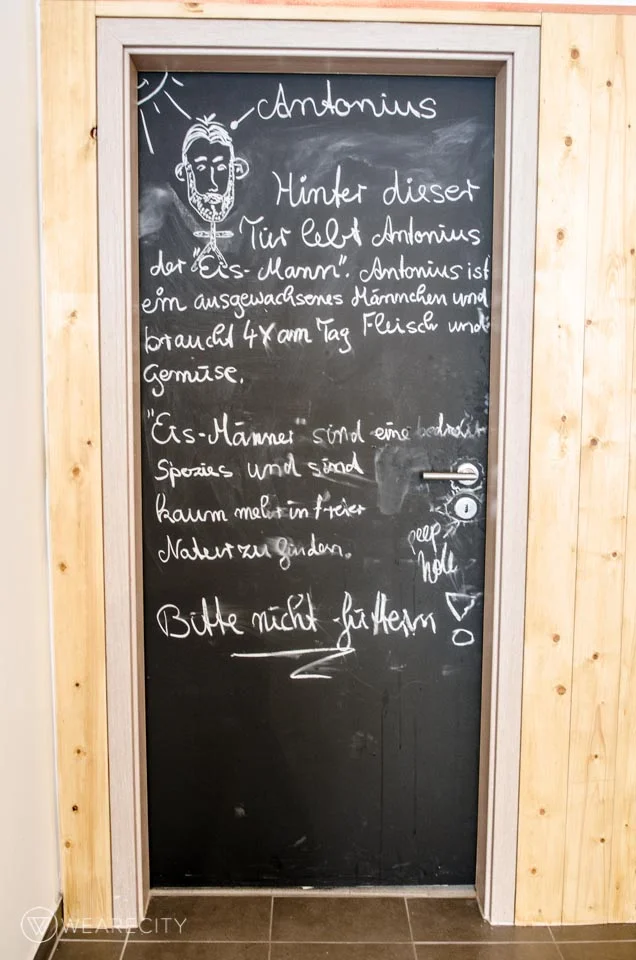 Antonius
Hinter dieser
Tür lebt Antonius
der "Eis-Mann". Antonius ist
ein ausgewachsenes Männchen und
braucht 4x am Tag Fleisch und
Gemüse.
"Eis-Männer" sind eine bedrohte
Spezies und sind
kaum mehr in freier
Natur zu finden.
peep
hole
Bitte nicht füttern!
WEARECITY